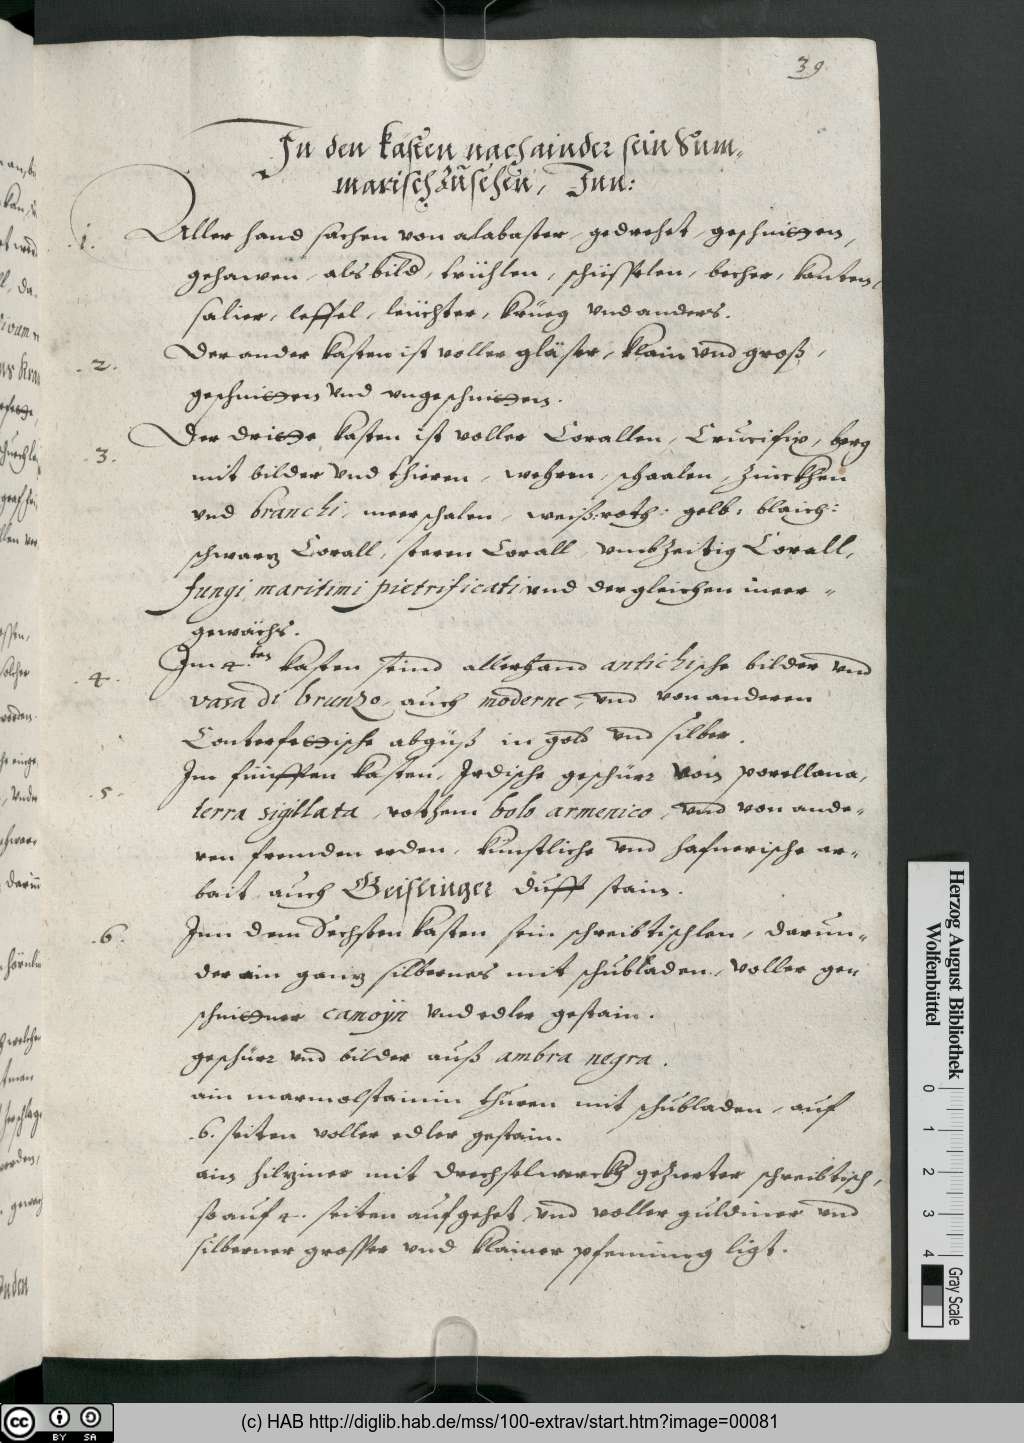 39
In den kasten nachainder sein Sum-
marisch Zusehen, Inn:
.1. Aller hand sachen von alabaster, gedrehet, geschnitten,
gehawen, als bild, trüchlen, schüsselen, becher, kanten,
salier, leffel, leüchter, krüeg vnd anders.
.2. Der ander kasten ist voller gläser, klain vnd groß,
geschnitten vnd vngeschnitten.
.3. Der dritte kasten ist voller Corallen, Crucifix, berg
mit bilder vnd thieren, wehren, schaalen, Zinckhen
vnd branchi, meerschalen, weiß: roth: gelb: blaich:
schwarz Corall, steren Corall, vnbzeitig Corall,
fungi maritimi pietrificati vnd der gleichen meer-
gewächs.
.4. Im 4.ten kasten seind allerhand antichische bilder vnd
vasa di brunzo, auch moderne, vnd von anderen
Conterfettische abgüß in gold vnd silber.
.5. Im fünfften kasten, Irdische geschürr von porcellana,
terra sigillata, rothem bolo armenico, vnd von ande-
ren fremden erden, kunstliche vnd hafnerische ar-
bait auch Geislinger duff stain.
.6. Inn dem Sechsten kasten sein schreibtischlen, darun-
der ain ganz silbernes mit schubladen, voller ge-
schnittner camoijn vnd edler gestain.
geschürr vnd bilder auß ambra negra.
ain marmolstainin thuren mit schubladen, auf
.6. seiten voller edler gestain.
ain hilziner mit drechselwerckh gezierter schreibtisch,
so auf 4. seiten aufgehet, vnd voller guldiner vnd
silberner grosser vnd klainer pfenning ligt.
Herzog August Bibliothek
Wolfenbüttel
0 1 2 3 4
Gray Scale
cc BY SA
(c) HAB http://diglib.hab.de/mss/100-extrav/start.htm?image=00081